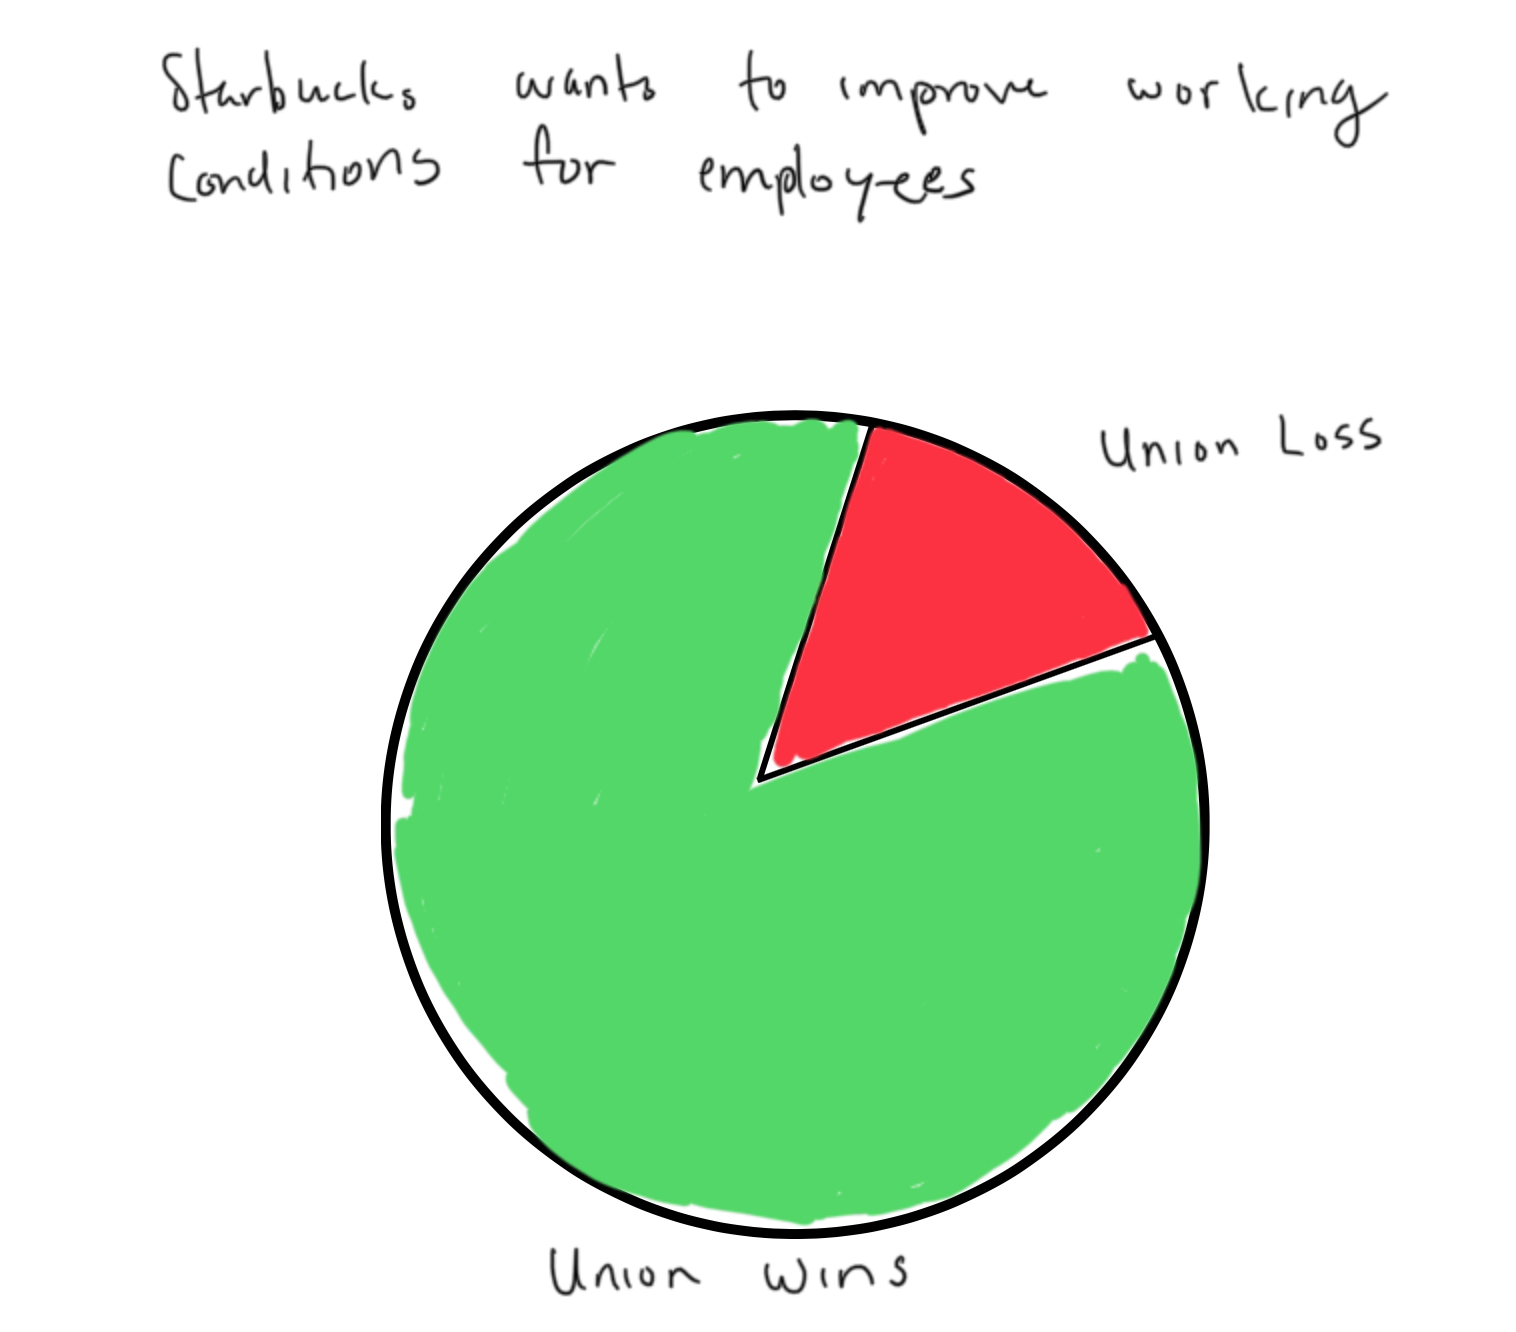 Starbucks wants to improve working
Conditions for employees
Union Loss
Union wins